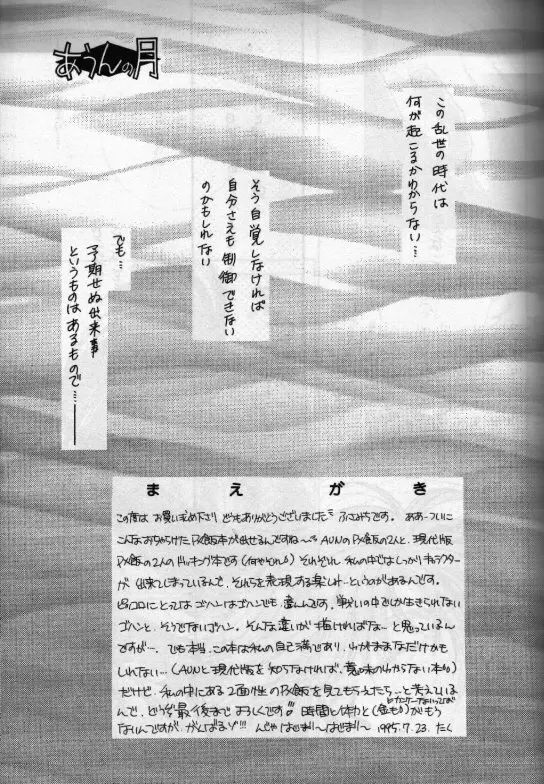 あうんの月
この乱世の時代は
何が起こるかわからない…
そう自覚しなければ
自分さえも制御できない
のかもしれない
でも…
予期せぬ出来事
というものはあるもので…
まえがき
この度は お買い求め下さり どうもありがとうございました ふさみちです。 ああーついに
こんなおちゃらけたP×飯本が出せるんですね〜 AUNのP×飯の2人と、現代版
P×飯の2人のドッキング本です(何やそれ) それぞれ 私の中ではしっかりキャラクター
が 出来てしまっているんで、それらを表現する楽しみ…というのがあるんです。
ピッコロにとっては ゴハンはゴハンでも 違うんです。 戦いの中でしか生きられない
ゴハンと、そうでないゴハン。 そんな違いが 描ければな… と思っているん
ですが…。 でも本当、この本は私の自己満であり、わがままなだけかも
しれない…(AUNと現代版を知らなければ、意味のわからない本)
だけど、私の中にある2面性のP×飯を見てもらえたら…と考えている
んで、どうぞ最後までよろしくです!! 時間と体力と(金も)がもう
ないんですが がんばるゾ!!! んじゃはじまり〜はじまり〜 1995.7.23. たく